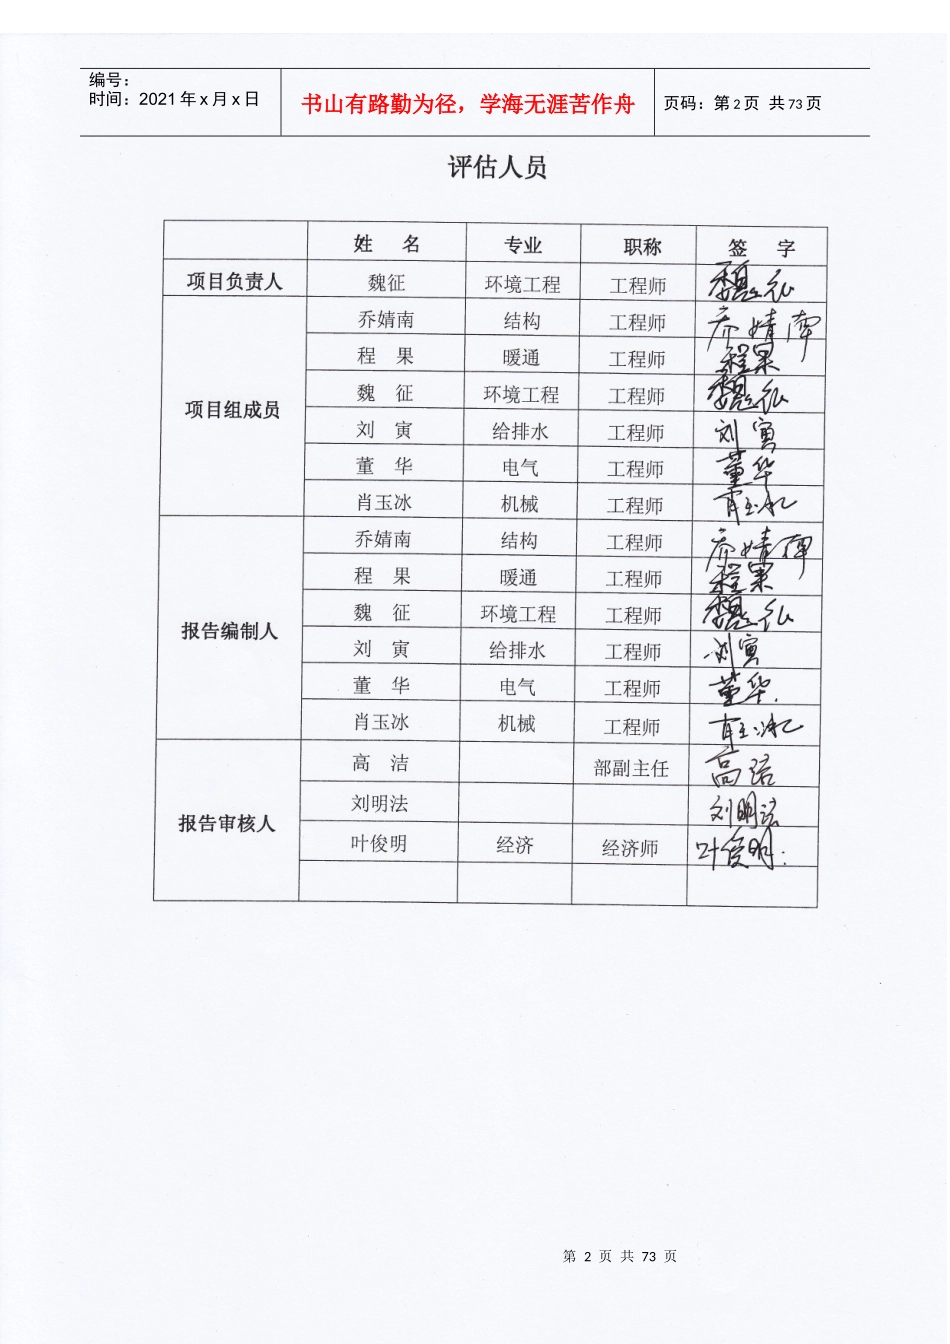 编号：
时间：2021年x月x日
书山有路勤为径，学海无涯苦作舟
页码：第2页 共73页
评估人员
姓 名 专业 职称 签 字
项目负责人 魏征 环境工程 工程师 魏征
项目组成员
乔婧南 结构 工程师 乔婧南
程 果 暖通 工程师 程果
魏 征 环境工程 工程师 魏征
刘 寅 给排水 工程师 刘寅
董 华 电气 工程师 董华
肖玉冰 机械 工程师 肖玉冰
报告编制人
乔婧南 结构 工程师 乔婧南
程 果 暖通 工程师 程果
魏 征 环境工程 工程师 魏征
刘 寅 给排水 工程师 刘寅
董 华 电气 工程师 董华
肖玉冰 机械 工程师 肖玉冰
报告审核人
高 洁 部副主任 高洁
刘明法 刘明法
叶俊明 经济 经济师 叶俊明
第 2 页 共 73 页